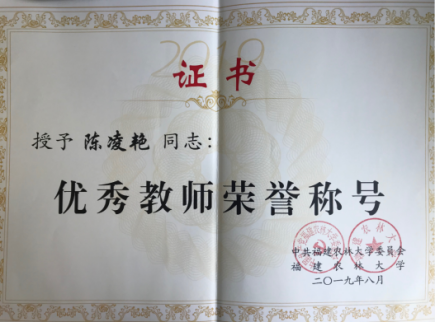 2019
证书
授予 陈凌艳 同志：
优秀教师荣誉称号
中共福建农林大学委员会
福建农林大学
二〇一九年八月